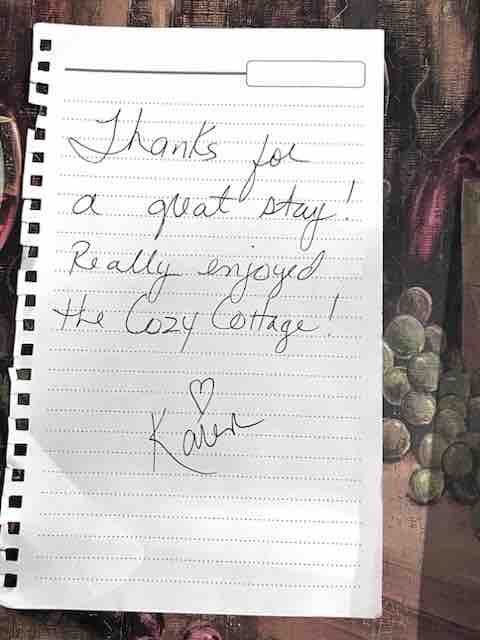 Thanks for
a great stay!
Really enjoyed
the Cozy Cottage!
♡
Karen